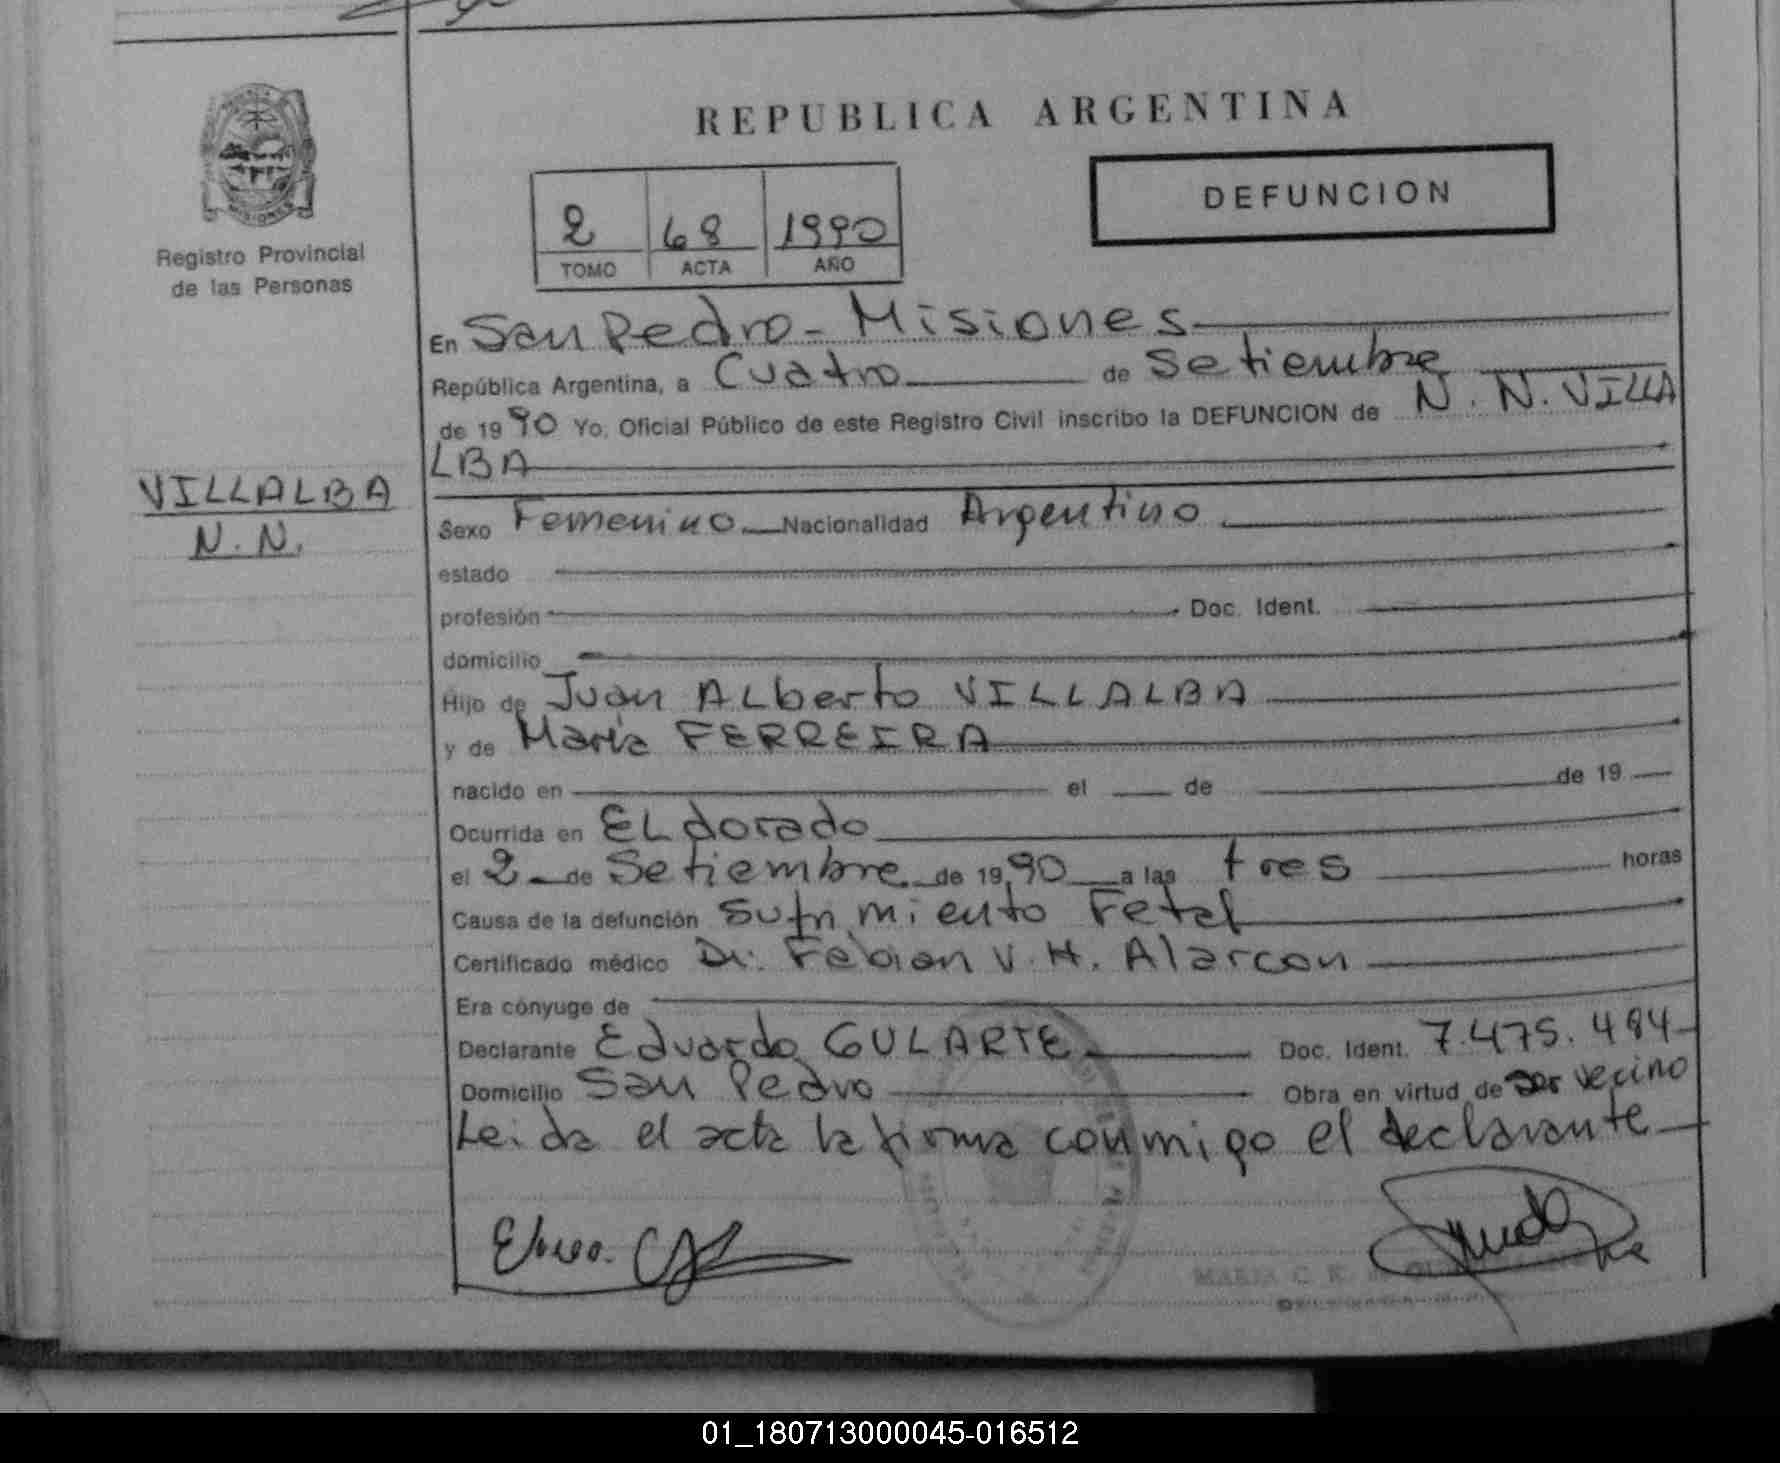 REPUBLICA ARGENTINA
DEFUNCION
2 68 1990
TOMO ACTA AÑO
Registro Provincial
de las Personas
En San Pedro - Misiones
República Argentina, a Cuatro de Setiembre
de 1990 Yo, Oficial Público de este Registro Civil inscribo la DEFUNCION de N. N. VILLA
LBA
VILLALBA
N. N.
Sexo Femenino Nacionalidad Argentino
estado
profesión Doc. Ident.
domicilio
Hijo de Juan ALberto VILLALBA
y de María FERREIRA
nacido en el de de 19
Ocurrida en ELdorado
el 2 de Setiembre de 1990 a las tres horas
Causa de la defunción Sufrimiento Fetal
Certificado médico Dr. Fabian V. H. Alarcon
Era cónyuge de
Declarante Eduardo GULARTE Doc. Ident. 7.475.484
Domicilio San Pedro Obra en virtud de ser vecino
Leida el acta la firma conmigo el declarante
MARIA C. R.
01_180713000045-016512